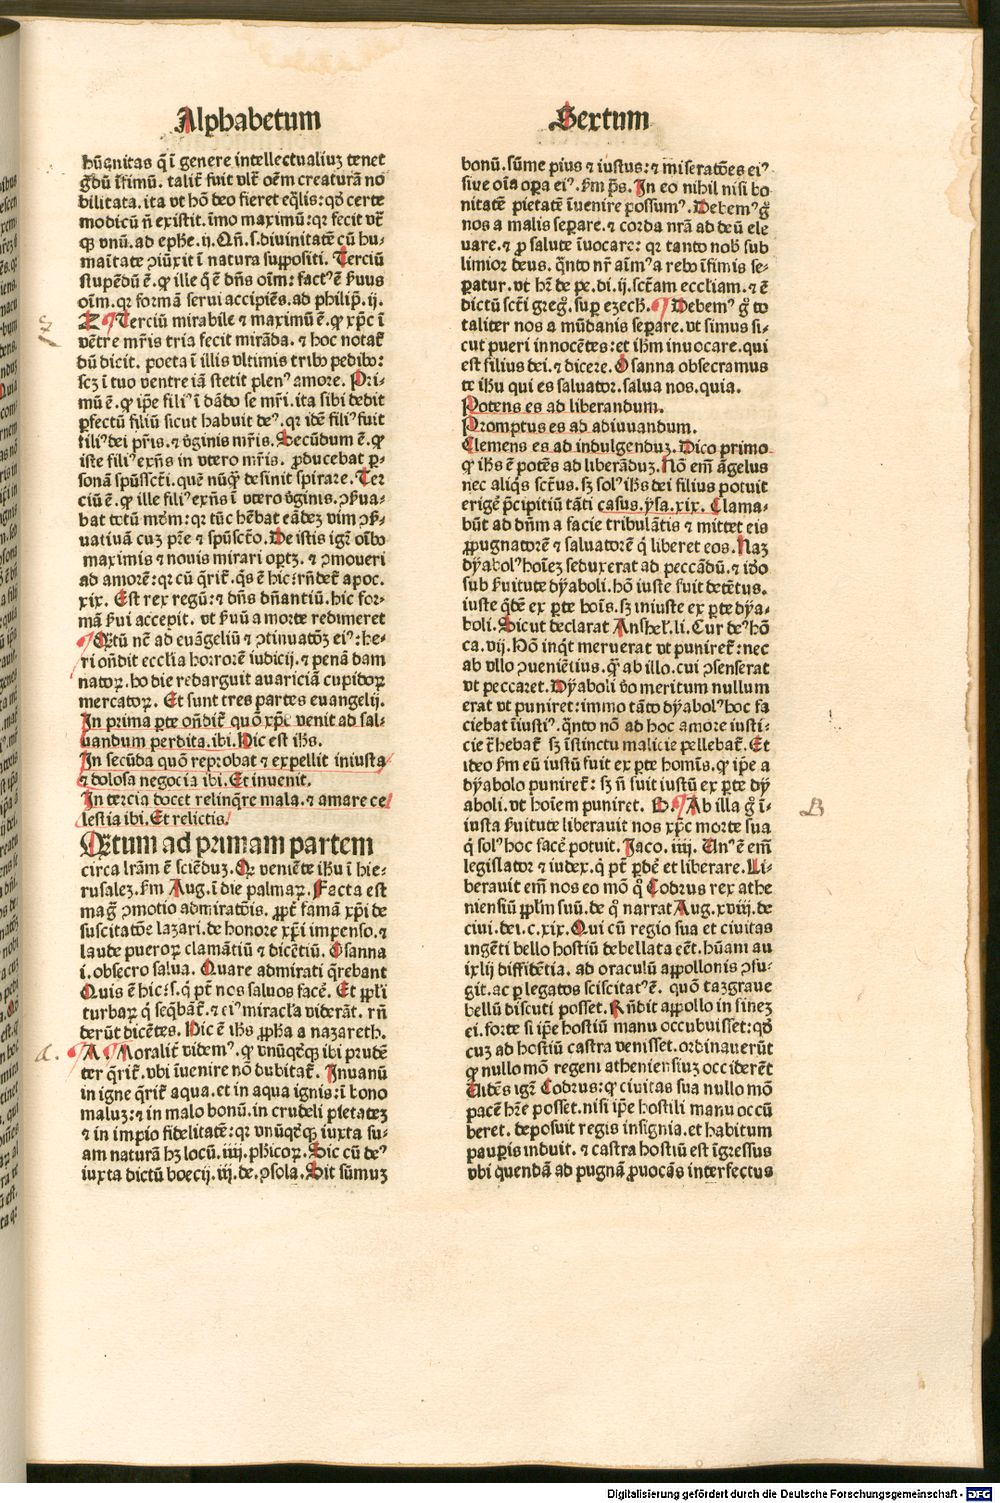 Alphabetum
Sextum
hūanitas q̄ ī genere intellectualiuꝫ tenet
g̈dū īfimū. talit̄ fuit vlt̄ oēm creaturā no
bilitata. ita vt hō deo fieret eq̄lis: qḋ certe
modicū n̄ existit. īmo maximū: qꝛ fecit vt̄
qꝫ vnū. ad ephe. ij. Qn̄. s. diuinitatē cū hu-
maītate ꝯiūxit ī natura suppositi. Terciū
stupēdū ē. ꝙ ille q̄ ē dn̄s oīm: factꝰ ē ẜuus
oīm. qꝛ formā serui accipiēs. ad philip̄. ij.
Z Terciū mirabile ⁊ maximū ē. ꝙ xp̄c ī
vētre mr̄is tria fecit mirāda. ⁊ hoc notat̄
dū dicit. poeta ī illis vltimis tribꝰ pedibꝰ:
scꝫ ī tuo ventre iā stetit plenꝰ amore. Pri-
mū ē. ꝙ ip̄e filiꝰ ī dādo se mr̄i. ita sibi dedit
ꝑfectū filiū sicut habuit deꝰ. qꝛ idē filiꝰ fuit
filiꝰ dei pr̄is. ⁊ v̇ginis mr̄is. Secūdum ē. ꝙ
iste filiꝰ exn̄s in vtero mr̄is. ꝓducebat ꝑ-
sonā sp̄ūssct̄i. quē nūq̄ꝫ desinit spirare. Ter
ciū ē. ꝙ ille filiꝰ exn̄s ī vtero v̇ginis. ꝯẜua-
bat totū mūm: qꝛ tūc hēbat eādeꝫ vim ꝯẜ-
uatiuā cuꝫ pr̄e ⁊ sp̄ūsct̄o. De istis igr̄ oībꝰ
maximis ⁊ nouis mirari optꝫ. ⁊ ꝯmoueri
ad amorē: qꝛ cū q̄rit̄. q̇s ē hic: rn̄det̄ apoc.
xix. Est rex regū: ⁊ dn̄s dn̄antiū. hic for-
mā ẜui accepit. vt ẜuū a morte redimeret
Qētū nē ad euāgeliū ⁊ ꝯtinuatōꝫ eiꝰ: he-
ri on̄dit ecclīa horrorē iudicij. ⁊ penā dam
natoꝝ. hodie redarguit auariciā cupidoꝝ
mercatoꝝ. Et sunt tres partes euangelij.
In prima ꝑte on̄dit̄ quō xp̄c venit ad sal-
uandum perdita. ibi. Hic est ih̄s.
In secūda quō reprobat ⁊ expellit iniusta
⁊ dolosa negocia ibi. Et inuenit.
In tercia docet relinq̄re mala. ⁊ amare ce
lestia ibi. Et relictis.
Qētum ad primam partem
circa lr̄am ē sciēduꝫ. Qꝛ veniēte ih̄u ī hie-
rusaleꝫ. ẜm Aug. ī die palmaꝝ. Facta est
mag̈ ꝯmotio admiratōis. ꝓpt̄ famā xp̄i de
suscitatōe lazari. de honore xp̄i impenso. ⁊
laude pueroꝝ clamātiū ⁊ dicētiū. Osanna
i. obsecro salua. Quare admirati q̄rebant
Quis ē hic: s. q̇ pt̄ nos saluos facē. Et ppl̄i
turbaꝝ q̇ seq̄bāt̄. ⁊ eiꝰ miracl̄a viderāt. rn̄
derūt dicētes. Hic ē ih̄s ꝓph̄a a nazareth.
A. Moralit̄ videmꝰ. ꝙ vnūqḋqꝫ ibi prudē
ter q̄rit̄. vbi īuenire nō dubitat̄. Inuanū
in igne q̄rit̄ aqua. et in aqua ignis: ī bono
maluꝫ: ⁊ in malo bonū. in crudeli pietateꝫ
⁊ in impio fidelitatē: qꝛ vnūqḋqꝫ iuxta su-
am naturā hꝫ locū. iiij. phicoꝝ. Sic cū deꝰ
iuxta dictū boecij. iij. de. ꝯsola. Sit sūmuꝫ
bonū. sūme pius ⁊ iustus: ⁊ miseratōes eiꝰ
siue oīa oꝑa eiꝰ. ẜm p̄s. In eo nihil nisi bo
nitatē pietatē īuenire possumꝰ. Debemꝰ g̊
nos a malis seꝑare. ⁊ corda nr̄a ad deū ele
uare. ⁊ ꝓ salute īuocare: qꝛ tanto nob̄ sub
limior deus. q̄nto nr̄ aīmꝰ a rebꝰ īfimis se-
ꝑatur. vt hr̄ de pe. di. ij. sct̄am eccliam. ⁊ ē
dictū sct̄i greg̊. suꝑ ezech. Debemꝰ g̊ to
taliter nos a mūdanis seꝑare. vt simus si-
cut pueri innocētes: et ih̄m inuocare. qui
est filius dei. ⁊ dicere. Osanna obsecramus
te ih̄u qui es saluator. salua nos. quia.
Potens es ad liberandum.
Promptus es ad adiuuandum.
Clemens es ad indulgenduꝫ. Dico primo
ꝙ ih̄s ē potēs ad liberāduꝫ. Nō em̄ āgelus
nec aliq̇s sct̄us. sꝫ solꝰ ih̄s dei filius potuit
erigē p̄cipitiū tāti casus. ysa. xix. Clama-
būt ad dn̄m a facie tribulātis ⁊ mittet eis
ꝓpugnatorē ⁊ saluatorē q̇ liberet eos. Naꝫ
dÿabolꝰ hoīeꝫ seduxerat ad peccādū. ⁊ iḋo
sub ẜuitute dÿaboli. hō iuste fuit detētus.
iuste q̇dē ex ꝑte hoīs. sꝫ iniuste ex ꝑte dÿa-
boli. Sicut declarat Anshel̄. li. Cur deꝰ hō
ca. vij. Hō inq̇t meruerat vt puniret̄: nec
ab vllo ꝯueniētius. q̄ꝫ ab illo. cui ꝯsenserat
vt peccaret. Dÿaboli v̊o meritum nullum
erat vt puniret: immo tāto dÿabolꝰ hoc fa
ciebat īiustiꝰ. q̄nto nō ad hoc amore iusti-
cie t̄hebat̄ sꝫ īstinctu malicie pellebat̄. Et
ideo ẜm eū iustū fuit ex ꝑte homīs. ꝙ ip̄e a
dÿabolo puniret̄: sꝫ n̄ fuit iustū ex ꝑte dÿ
aboli. vt hoīem puniret. B. Ab illa g̊ ī-
iusta ẜuitute liberauit nos xp̄c morte sua
q̇ solꝰ hoc facē potuit. Jaco. iiij. Unꝰ ē em̄
legislator ⁊ iudex. q̇ pt̄ ꝑdē et liberare. Li-
berauit em̄ nos eo mō q̊ Codrus rex athe
niensiū ppl̄m suū. de q̊ narrat Aug. xviij. de
ciui. dei. c. xix. Qui cū regio sua et ciuitas
ingēti bello hostiū debellata eēt. hūani au
ixlij diffidētia. ad oraculū appollonis ꝯfu-
git. ac ꝑ legatos sciscitatꝰ ē. quō tazgraue
bellū discuti posset. Rn̄dit appollo in fineꝫ
ei. forte si ip̄e hostiū manu occubuisset: qḋ
cuꝫ ad hostiū castra venisset. ordinauerūt
ꝙ nullo mō regem atheniensiuꝫ occiderēt
Uidēs igr̄ Codrus: ꝙ ciuitas sua nullo mō
pacē hr̄e posset. nisi ip̄e hostili manu occū
beret. deposuit regis insignia. et habitum
pauꝑis induit. ⁊ castra hostiū est īgressus
vbi quendā ad pugnā ꝓuocās interfectus
a.
B
Digitalisierung gefördert durch die Deutsche Forschungsgemeinschaft - DFG